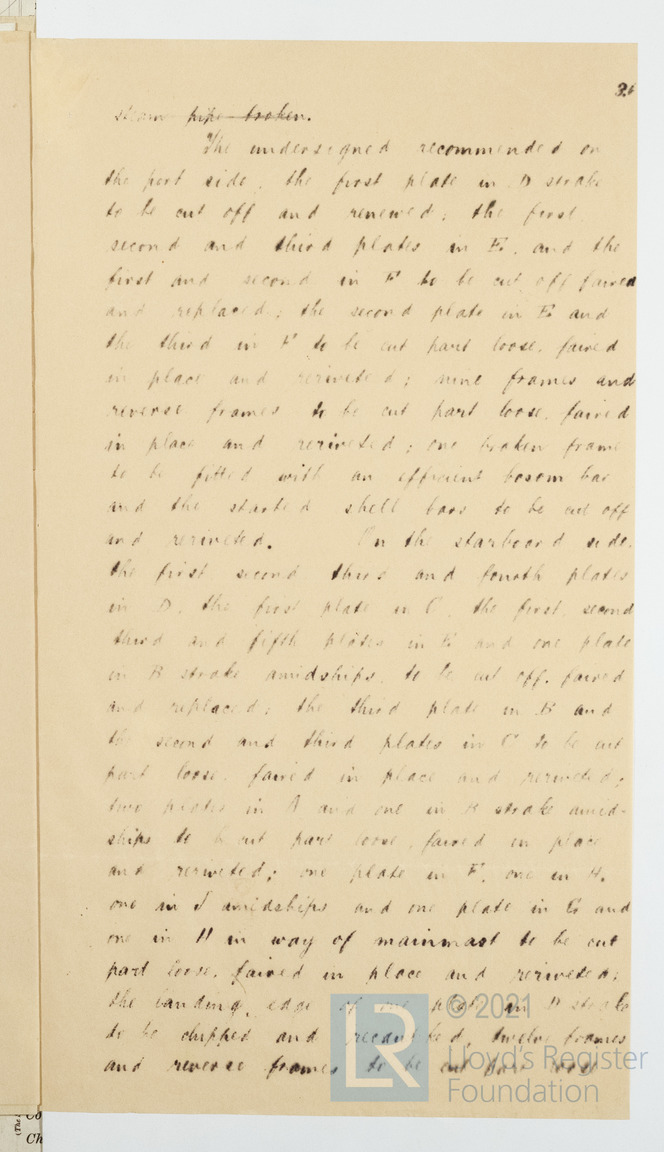 3.
steam pipe broken.
The undersigned recommended on
the port side, the first plate in D strake
to be cut off and renewed; the first,
second and third plates in E, and the
first and second in F to be cut off faired
and replaced; the second plate in E and
the third in F to be cut part loose, faired
in place and reriveted; nine frames and
reverse frames to be cut part loose, faired
in place and reriveted; one broken frame
to be fitted with an efficient bosom bar
and the started shell bars to be cut off
and reriveted. On the starboard side,
the first second third and fourth plates
in D, the first plate in C, the first, second
third and fifth plates in E and one plate
in B strake amidships, to be cut off, faired
and replaced; the third plate in B and
the second and third plates in C to be cut
part loose, faired in place and reriveted;
two plates in A and one in H strake amid-
ships to be cut part loose, faired in place
and reriveted; one plate in F, one in H,
one in J amidships and one plate in G and
one in H in way of mainmast to be cut
part loose, faired in place and reriveted;
the landing edge of one plate in D strake
to be chipped and recaulked, twelve frames
and reverse frames to be cut part loose
LR
© 2021
Lloyd's Register
Foundation
(The
Co
Ch